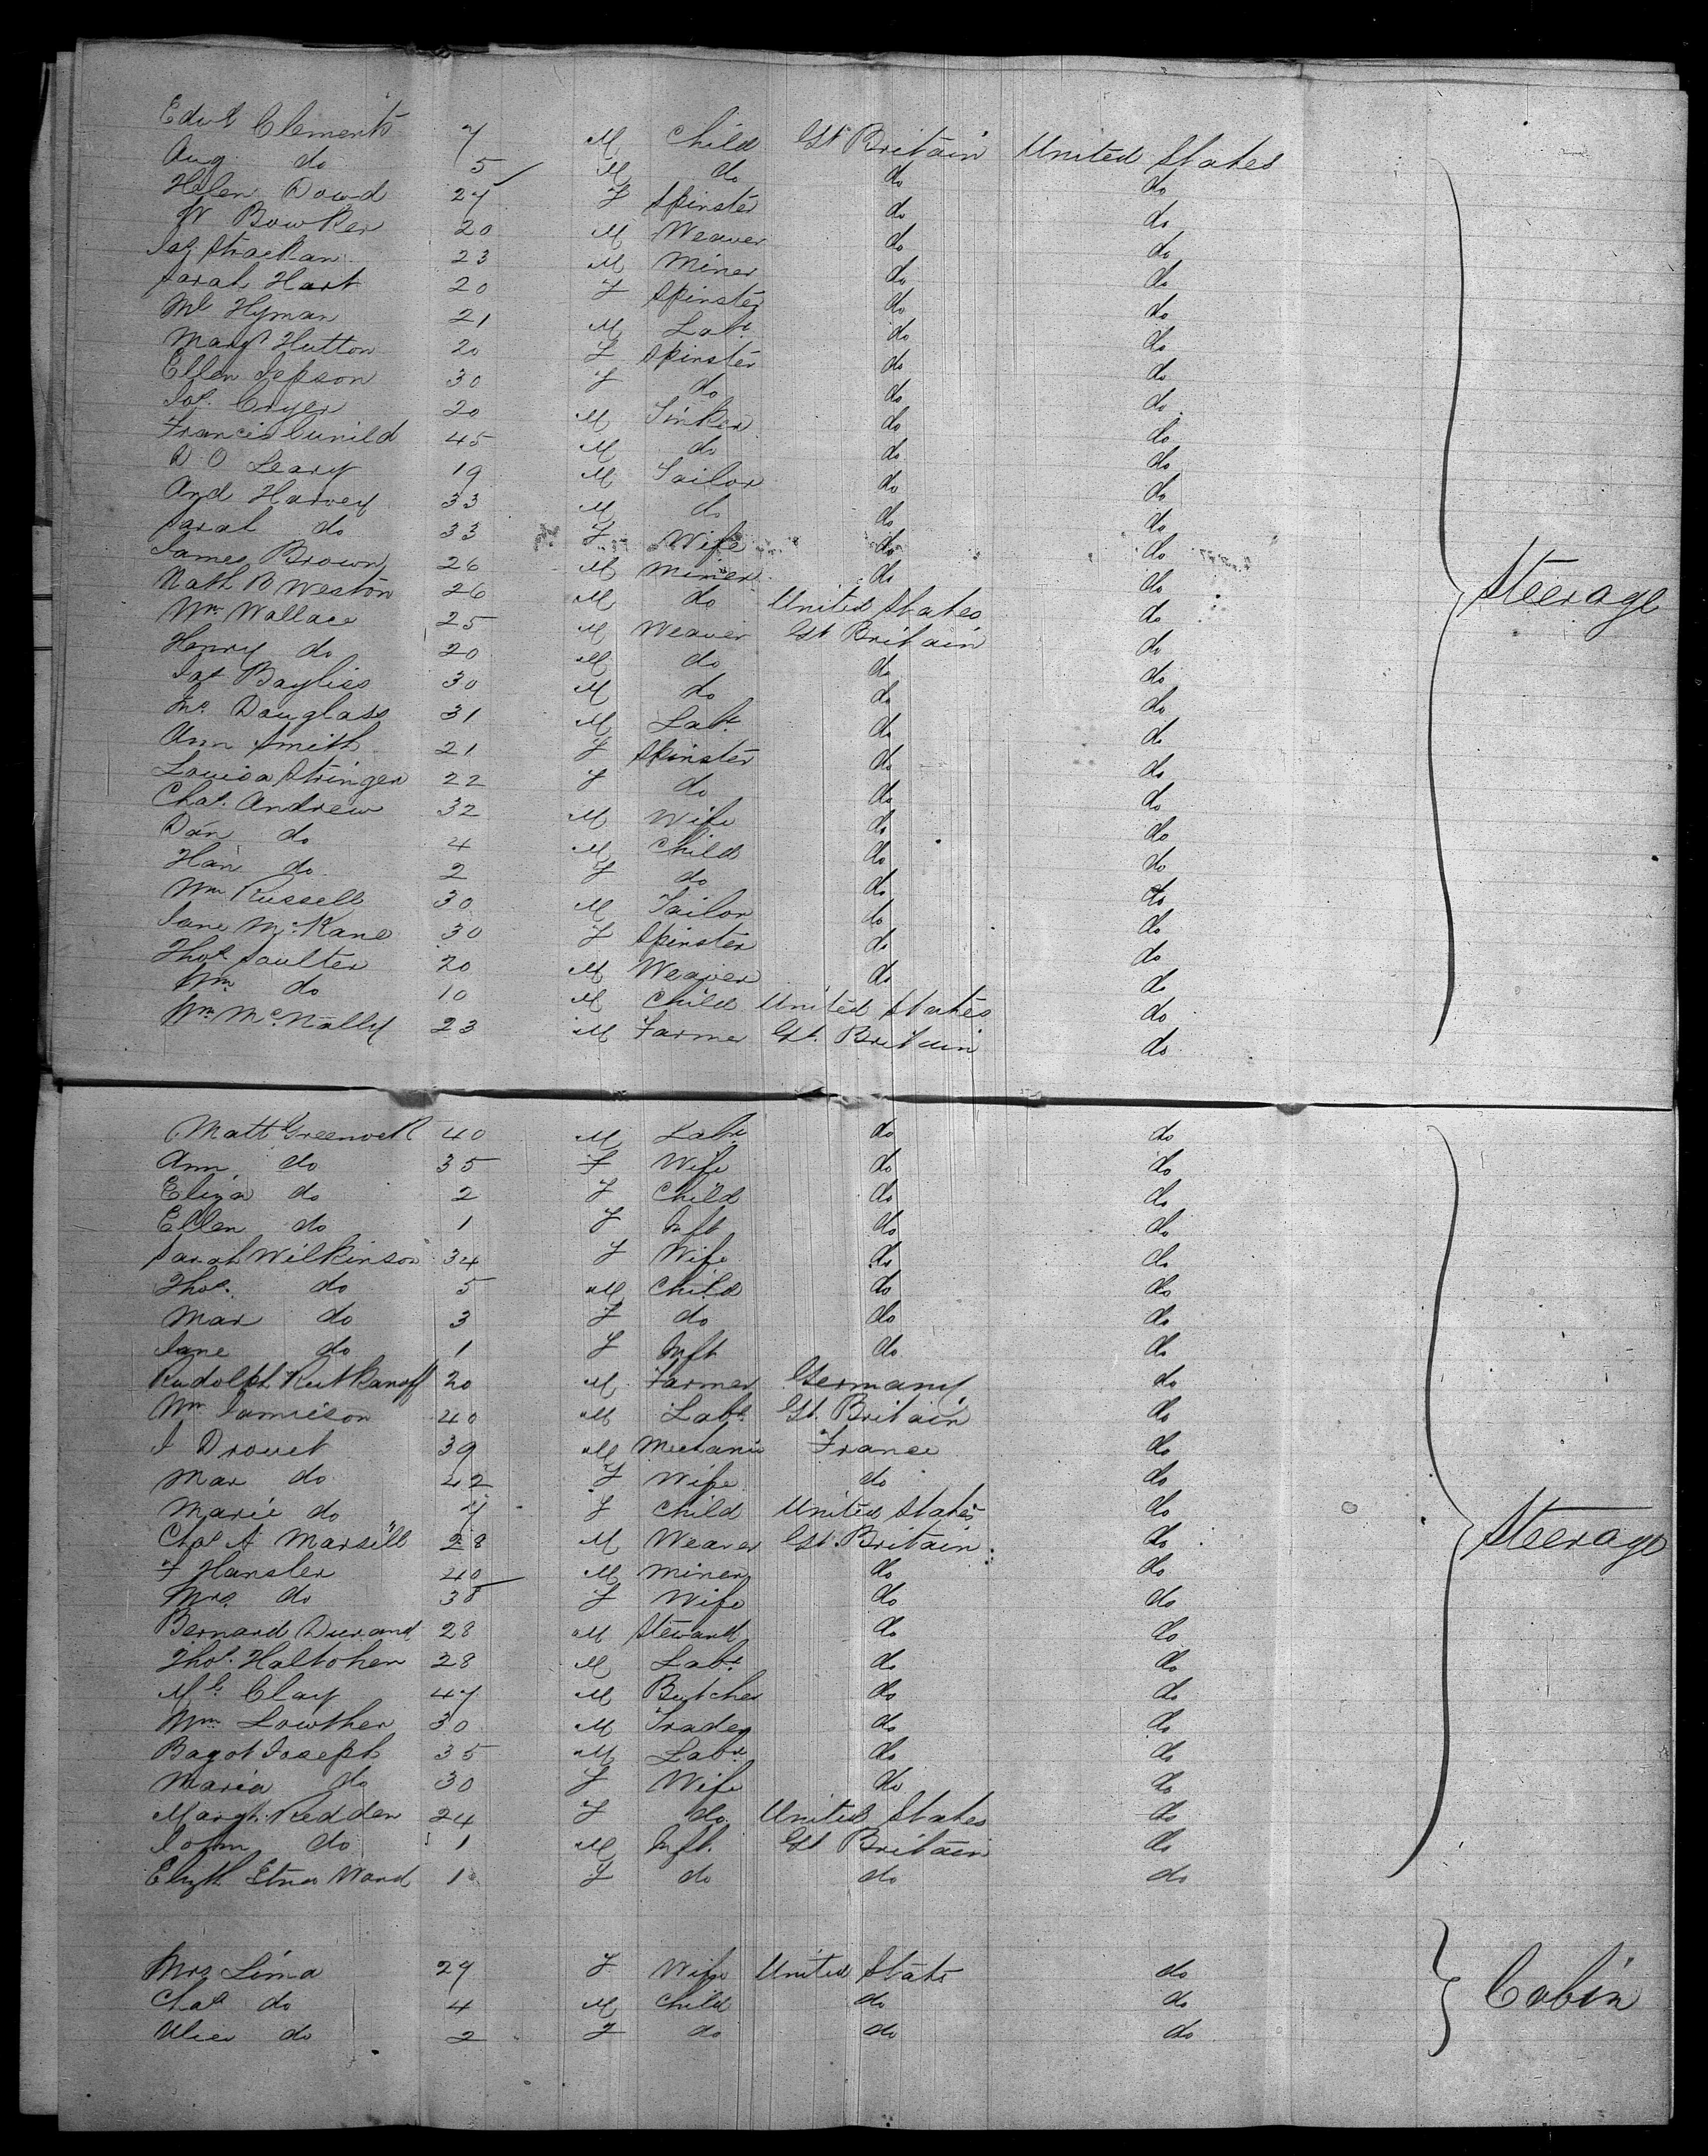 Edwd Clements 7 M Child Gt Britain United States
Aug do 5 M do do do
Helen Dowd 27 F Spinster do do
W Bowker 20 M Weaver do do
Jas Strachan 23 M Miner do do
Sarah Hart 20 F Spinster do do
Ml Hyman 21 M Labr do do
Margt Hutton 20 F Spinster do do
Ellen Jepson 30 F do do do
Jos. Cryer 20 M Tinker do do
Francis Cunild 45 M do do do
D. O Leary 19 M Tailor do do
And Harvey 33 M do do do
Sarah do 33 F Wife do do
James Brown 26 M Miner do do
Nath B Weston 26 M do United States do
Wm Wallace 25 M Weaver Gt Britain do
Henry do 20 M do do do
Jas Bayliss 30 M do do do
Jno. Douglass 31 M Labr. do do
Ann Smith 21 F Spinster do do
Louisa Stringer 22 F do do do
Chas. Andrew 32 M Wife do do
Dan do 4 M Child do do
Han do 2 F do do do
Wm Russell 30 M Tailor do do
Jane McKane 30 F Spinster do do
Thos Saulter 20 M Weaver do do
Wm do 10 M Child United States do
Wm McNally 23 M Farmer Gt. Britain do
Steerage
Matt 40 M Labr do do
Ann do 35 F Wife do do
Eliza do 2 F Child do do
Ellen do 1 F Inft do do
Sarah Wilkinson 34 F Wife do do
Thos. do 5 M Child do do
Mar do 3 F do do do
Jane do 1 F Inft do do
Rudolph Rutkanoff 20 M Farmer Germany do
Wm Jamieson 40 M Labr. Gt. Britain do
J Drouet 39 M Mechanic France do
Mar do 42 F Wife do do
Marie do 7 F Child United States do
Chas A Marsill 28 M Weaver Gt. Britain do
F Hansler 40 M Miner do do
Mrs. do 38 F Wife do do
Bernard Durand 28 M Steward do do
Thos. Haltohen 28 M Labr. do do
Ml. Clay 47 M Butcher do do
Wm Lowther 30 M Trader do do
Bagot Joseph 35 M Labr do do
Maria do 30 F Wife do do
Margt. Redden 24 F do United States do
John do 1 M Inft. Gt Britain do
Elizth Etna Ward 1 F do do do
Steerage
Mrs Lima 27 F Wife United States do
Chas do 4 M Child do do
do 2 F do do do
Cabin